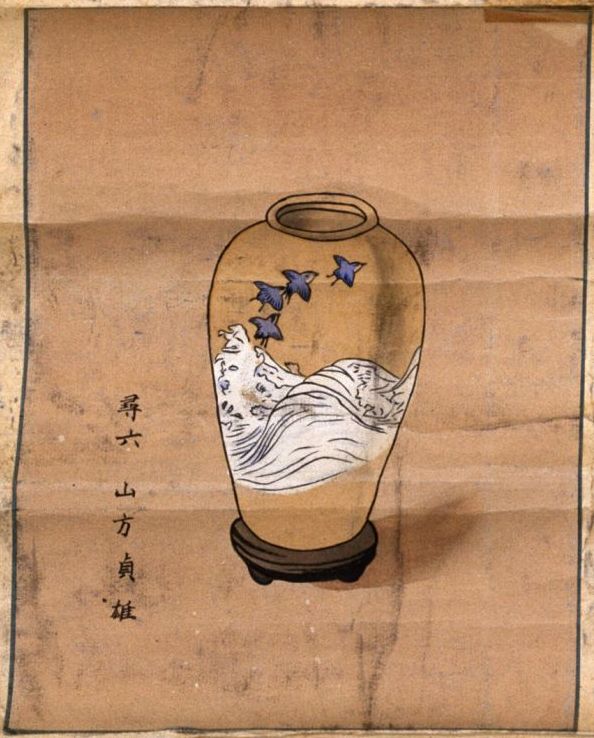 尋六 山方貞雄